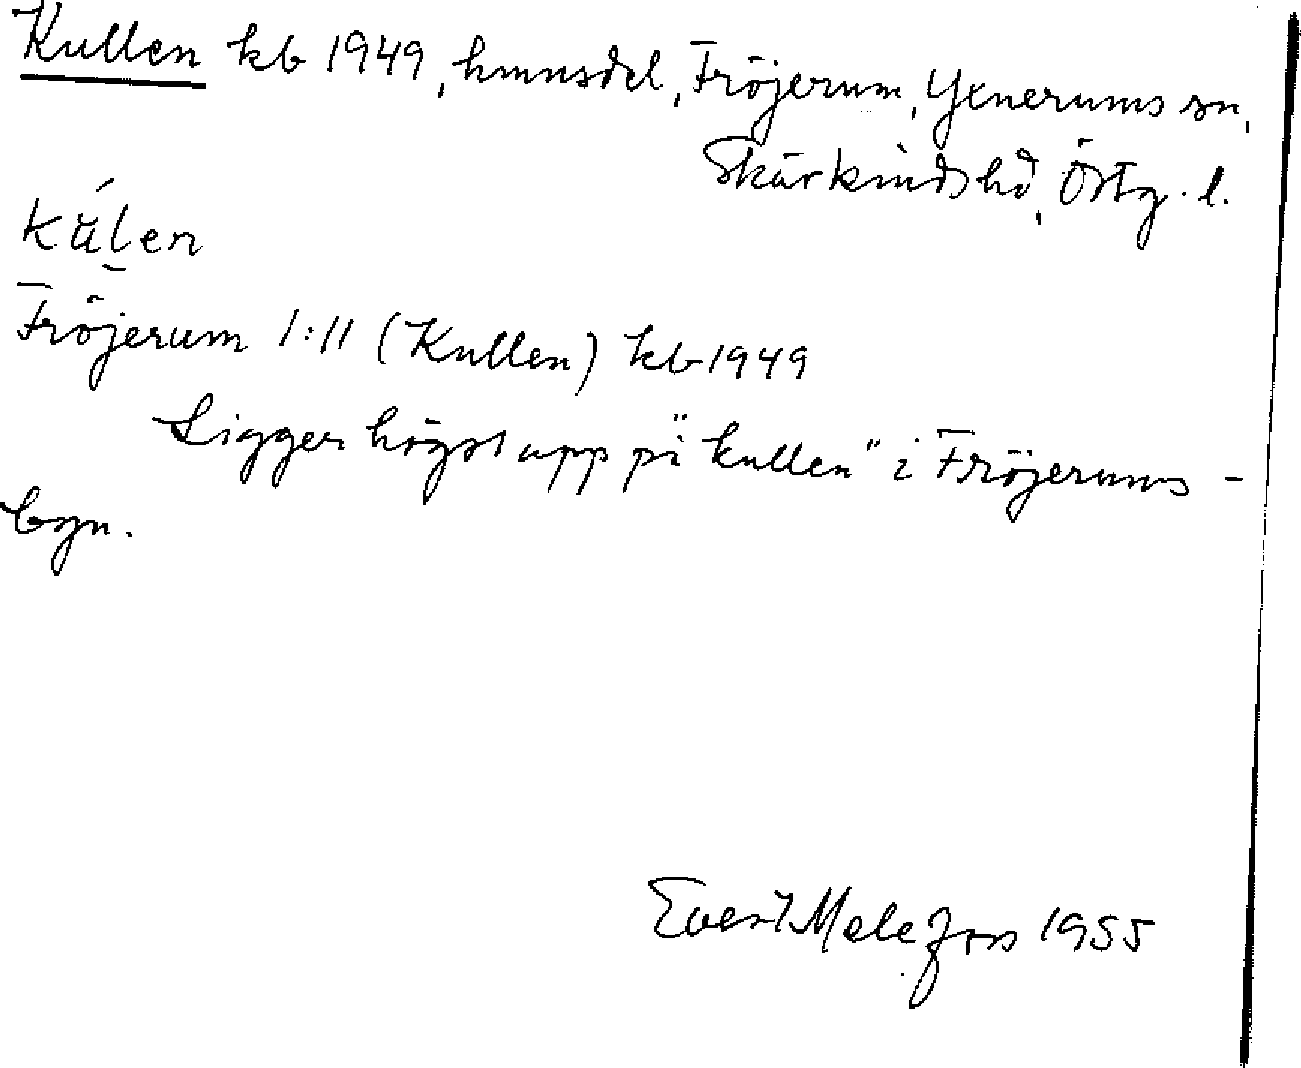 Kullen kb 1949, hmnsdel, Fröjerum, Yxnerums sn,
Skärkinds hd, Östg. l.
Fröjerum 1:11 (Kullen) kb 1949
Ligger högst upp på "kullen" i Fröjerums-
bgn.
Evert Melefors 1955